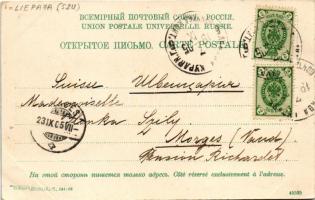 LIEPAJA (SSU)
ВСЕМІРНЫЙ ПОЧТОВЫЙ СОЮЗЪ. РОССІЯ.
UNION POSTALE UNIVERSELLE. RUSSIE.
ОТКРЫТОЕ ПИСЬМО. CARTE POSTALE.
Suisse Швейцарія
Mademoiselle
Ilonka Szily
à Morges (Vaud)
Pension Richardet
23.IX.05.VII
На этой сторонѣ пишется только адресъ. Côté réservé exclusivement à l'adresse.